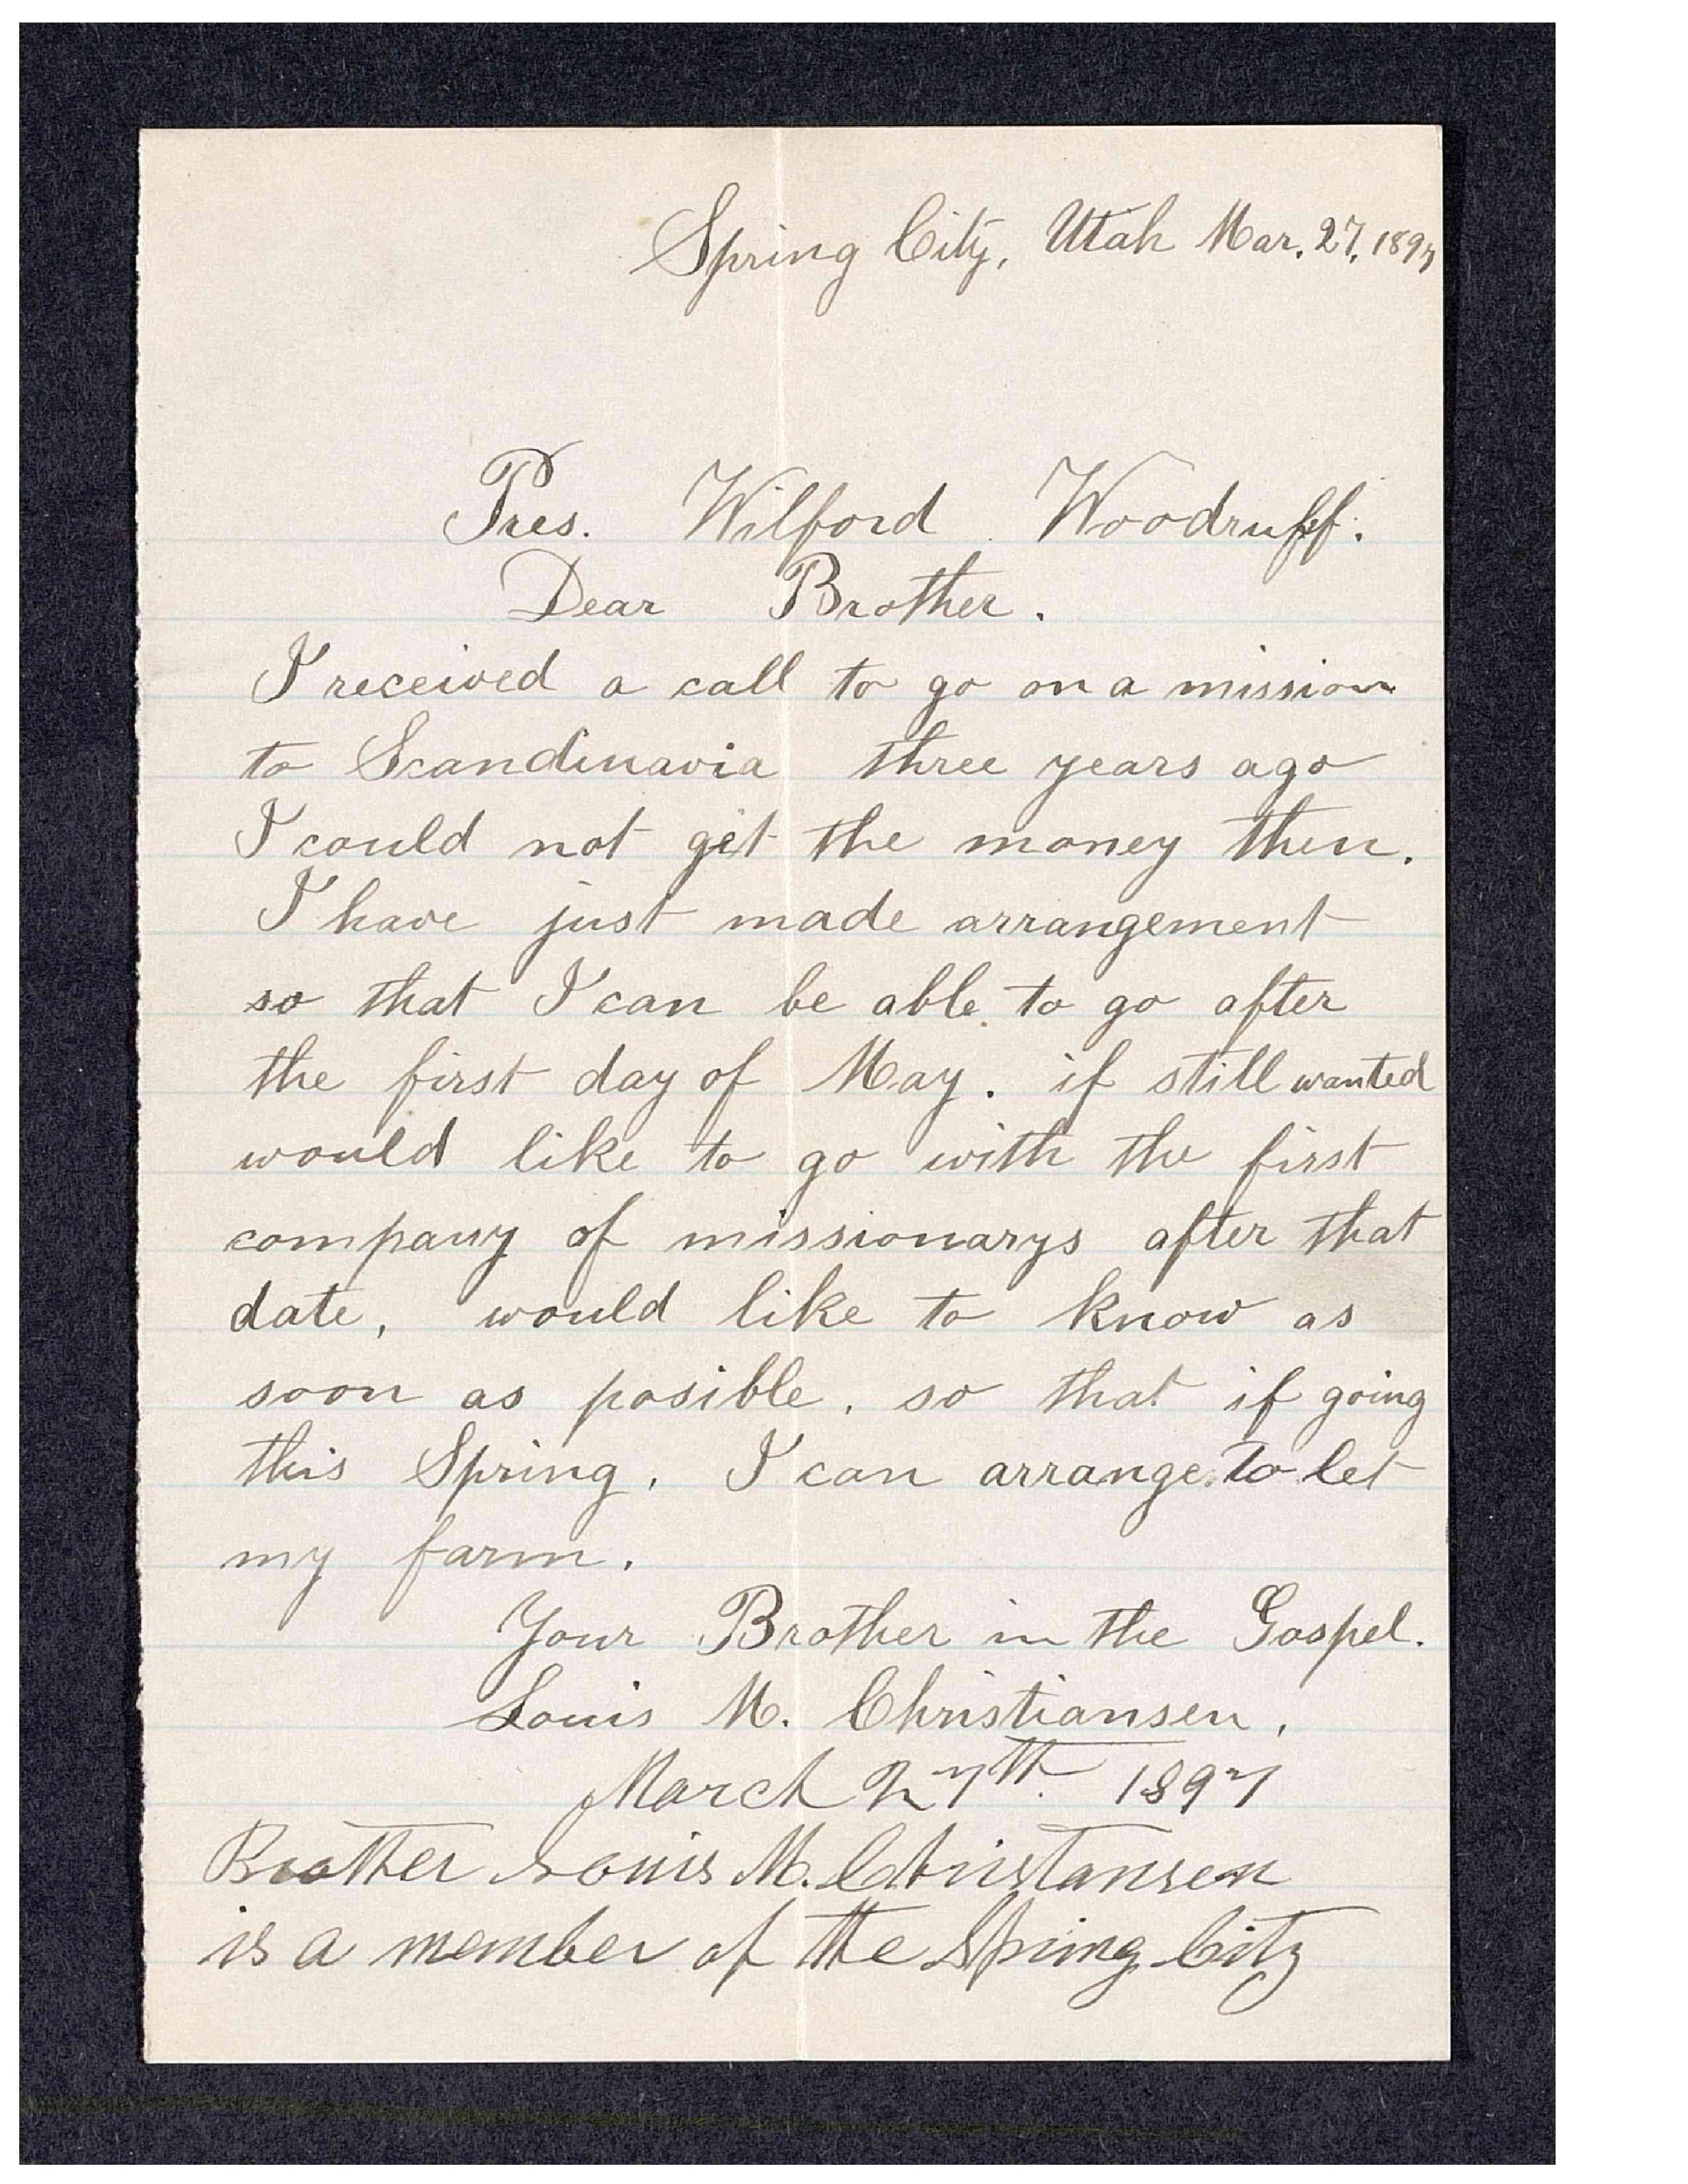 Spring City, Utah Mar. 27, 1897
Pres. Wilford Woodruff.
Dear Brother.
I received a call to go on a mission
to Scandinavia three years ago
I could not get the money then.
I have just made arrangement
so that I can be able to go after
the first day of May. if still wanted
would like to go with the first
company of missionarys after that
date, would like to know as
soon as posible, so that if going
this Spring, I can arrange to let
my farm.
Your Brother in the Gospel.
Louis M. Christiansen,
March 27th. 1897
Brother Louis M. Christansen
is a member of the Spring City